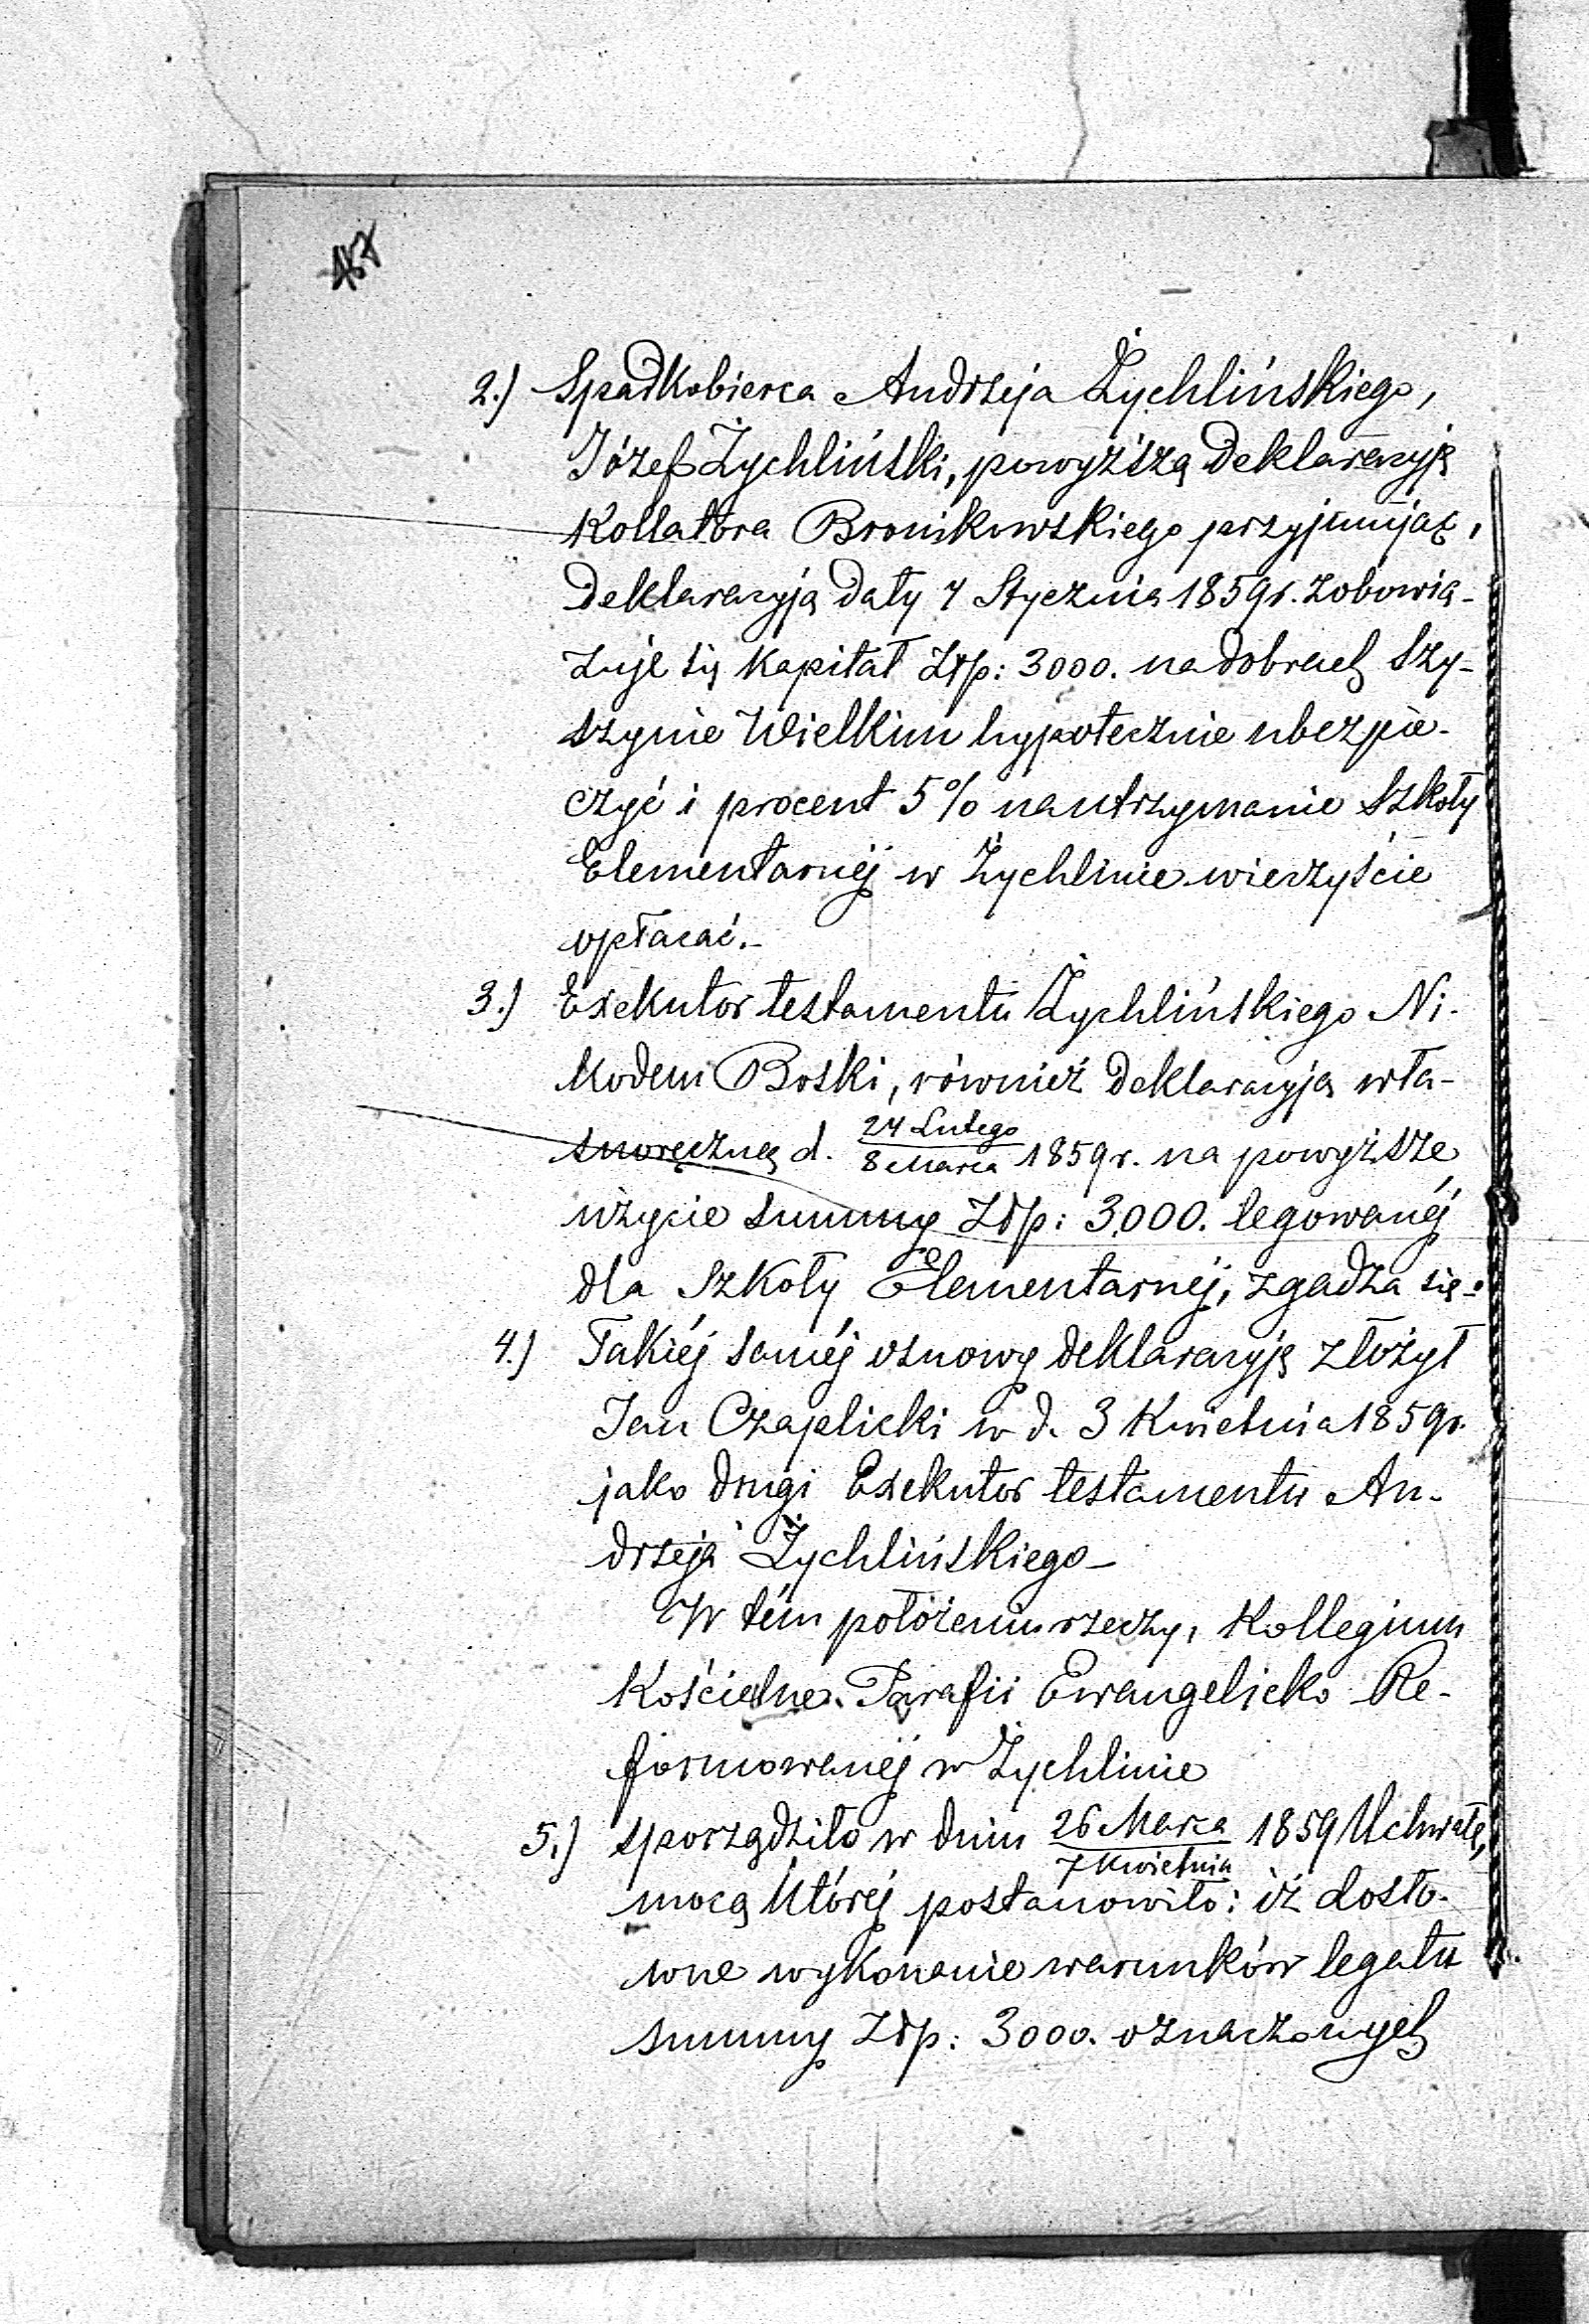 157
2.) Spadkobierca Andrzeja Żychlińskiego,
Józef Żychliński, powyższą Deklaracyją
Kollatora Bronikowskiego przyjmując,
Deklaracyją daty 4 Stycznia 1859 r. zobowią-
zuje się Kapitał Złp: 3000. na dobrach Szy-
szynie Wielkim hypotecznie ubezpie-
czyć i procent 5% na utrzymanie Szkoły
Elementarnéj w Żychlinie wieczyście
opłacać.-
3.) Exekutor testamentu Żychlińskiego Ni-
kodem Boski, również Deklaracyją wła-
snoręczną d. 24 Lutego/8 Marca 1859 r. na powyższe
użycie summy Złp: 3,000. legowanéj
dla Szkoły Elementarnéj, zgadza się.-
4.) Takiéj saméj osnowy deklaracyję złożył
Jan Czaplicki w d. 3 Kwietnia 1859 r.
jako drugi Exekutor testamentu An-
drzeja Żychlińskiego-
W tém położeniu rzeczy, Kollegium
Kościelne Parafii Ewangelicko Re-
formowanéj w Żychlinie
5.) sporządziło w dniu 26 Marca/7 Kwietnia 1859 Uchwałę,
mocą któréj postanowiło: iż dosło-
wne wykonanie warunków legatu
summy Złp: 3000. oznaczonych